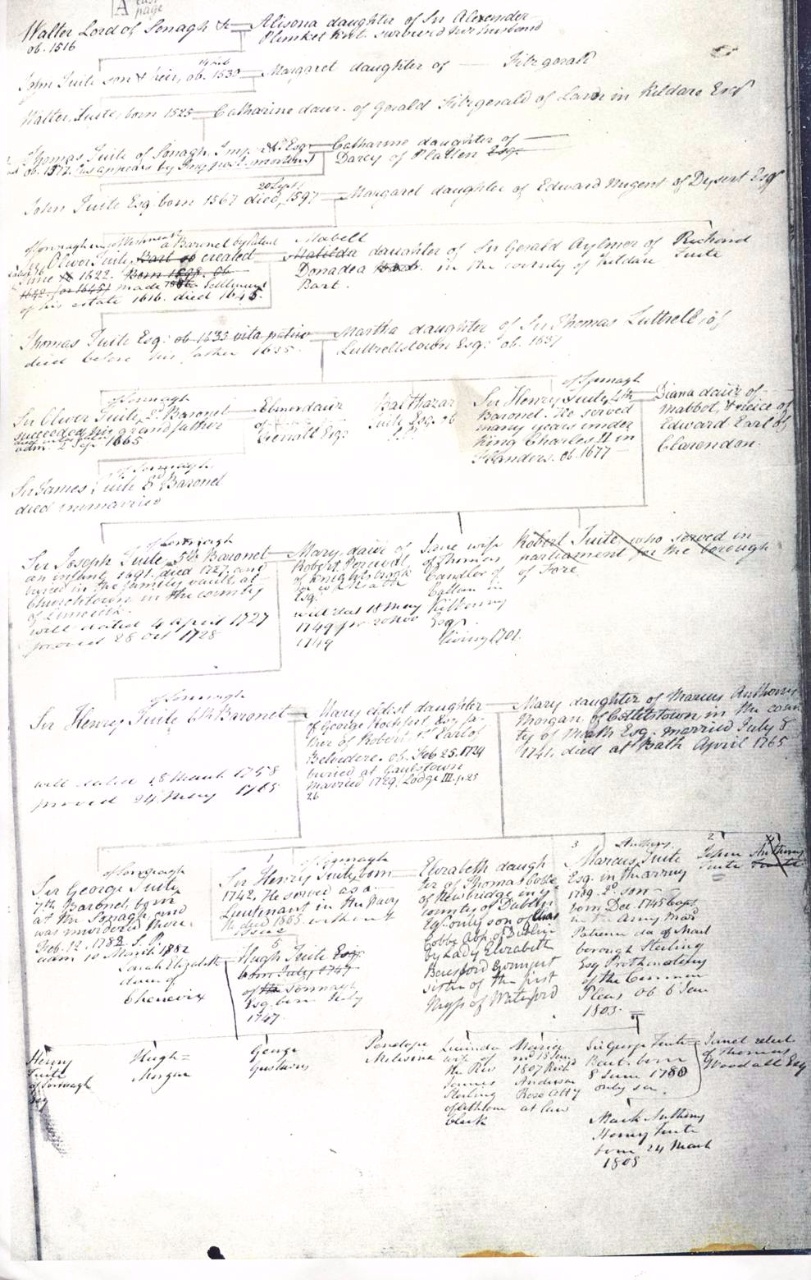 A last page
Walter Lord of Sonagh Kt
ob. 1516
Alisona daughter of Sir Alexander
Plunket Knt. survived her husband
John Tuite son & heir, ob. 1530
Margaret daughter of — Fitzgerald
Walter Tuite, born 1525
Catharine daur. of Gerald Fitzgerald of in Kildare Esqr
Thomas Tuite of Sonagh Esqr
ob. 1577. as appears by
Catharine daughter of —
Darcy of Platten Esqr.
John Tuite Esq born 1567 died 1597
Margaret daughter of Edward Nugent of Dysert Esqr
of Sonagh
a Baronet by patent
Oliver Tuite, Bart ob created
June 1622. Born 1588. ob
1642 (or 1645) made settlement
of his estate 1616. died 1645.
Mabell
Matilda daughter of Sir Gerald Aylmer of
Donadea Bart. in the county of Kildare
Bart.
Richard
Tuite
Thomas Tuite Esq: ob 1633 vita patris
died before his father 1635
Martha daughter of Sir Thomas Luttrell of
Luttrellstown Esq: ob. 1637
of Sonnagh
Sir Oliver Tuite, 2d Baronet
succeeded his grandfather
1665
Elinor daur
of
Esqr.
Balthazar
Tuite Esq. ob
S.P.
of Sonnagh
Sir Henry Tuite, 4th
Baronet. He served
many years under
King Charles II in
Flanders. ob. 1677
Diana daur of
Mabbot, & niece of
Edward Earl of
Clarendon.
of Sonnagh
Sir James Tuite 3d Baronet
died unmarried
of Sonnagh
Sir Joseph Tuite 5th Baronet
an infant 1691. died 1727, and
buried in the family vault at
Churchtown in the county
of
will dated 4 April 1727
proved 28 Oct 1728
Mary, daur of
Robert Percival
of Knightsbrook
Esq.
will dat 11 May
1749
1749
Jane wife
of Thomas
Candler of
Callan in
Kilkenny
Esqr.
living 1701.
Robert Tuite, who served in
parliament for the borough
of Fore
of Sonnagh
Sir Henry Tuite 6th Baronet
will dated 18 March 1758
proved 24 May 1765
Mary eldest daughter
of George Rochfort Esq fa-
ther of Robert, 1st Earl of
Belvidere. ob. Feb 25. 1724
buried at Gaulstown
married 1729. Lodge III. p. 23
26
Mary daughter of Marcus Anthony
Morgan of Cotletstown in the coun
ty of Meath Esq. married July 8
1741. died at Bath April 1765
of Sonnagh
Sir George Tuite
7th Baronet, born
at the Sonagh and
was murdered there
Feb. 12. 1782 S.P.
adm 10 March 1782
1
of Sonnagh
Sir Henry Tuite born
1742. He served as a
Lieutenant in the Navy
& died 1805 without
issue
Elizabeth daugh
ter of Thomas Cobbe
of Newbridge in ye
county of Dublin
Esq. only son of Chas
Cobbe Abp of Dublin
by Lady Elizabeth
Beresford youngest
sister of the first
Marqss of Waterford
3
Anthony
Marcus Tuite
Esq. in the army
1789. 2d son
born Dec 1745 capt
in the Army mar
Patience da of Mark
borough Sterling
Esq Prothonotary
of the Common
Pleas ob 6 Jan
1803
2
John Anthony
Tuite
Sarah Elizabeth
daur of
Chenevix
5
Hugh Tuite Esq
born July 1747
of the Sonnagh
Esq. born July
1747.
Henry
Tuite
of Sonnagh
Esq
Hugh=
Morgan
George
Gustavus
Penelope
Melosina
Lucinda
wife of
the Rev
James
Sterling
of Athlone
clerk
Maria
md 18 Jan
1807 Richd
Anderson
Rose Atty
at law
Sir George Tuite
Bart. born
8 June 1780
only son.
Janet relict
of Thomas
Woodall Esq
Mark Anthony
Henry Tuite
born 24 March
1808